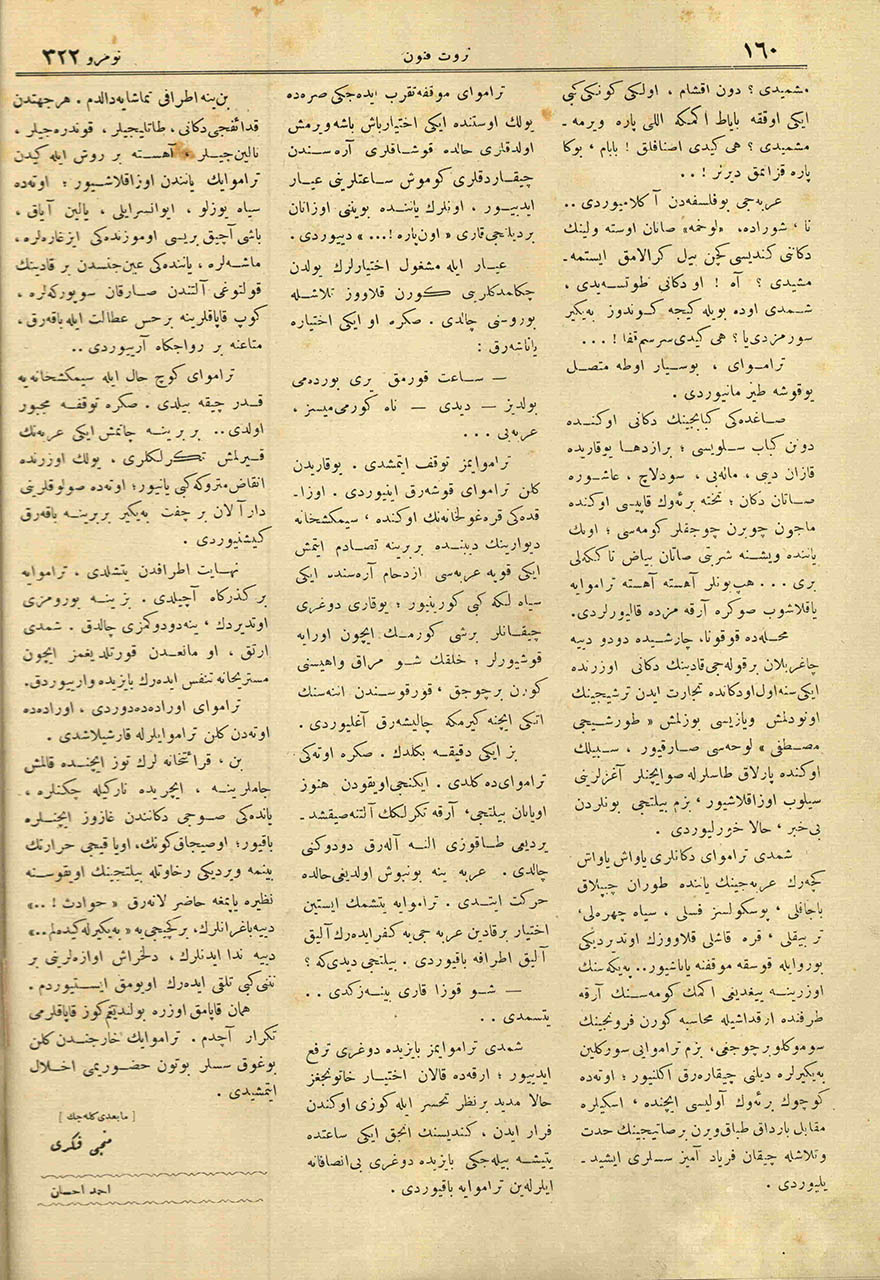 ١٦٠
ثروت فنون
نومرو ٣٢٢
مشمیدی ؟ دون اقشام ، اولکی کونکی کبی
ایکی اوققه بایاط اکمکه اللی پاره ویرمه ـ
مشمیدی ؟ هی کیدی اصنافلق ! بابام ، بوکا
پاره قزانمق دیرلر ! ..
عربه‌جی بوفلسفه‌دن آ کلامیوردی ..
نا ، شوراده ، «لوخمه» صاتان اوسته ولینك
دکاننی کندیسی کچن ییل کرالامق ایستمه ـ
مشیدی ؟ آه ! او دکانی طوتسه‌یدی ،
شمدی اوده بویله کیجه کوندوز به‌یکیر
سورمزدی یا ؟ هی کیدی سرسم قفا ! ...
تراموای ، بوسیار اوطه متصل
یوقوشه طیرمانیوردی .
صاغده‌کی کبابجینك دکانی اوکنده
دونن کباب سلویسی ؛ برازدها یوقاریده
قازان دیبی ، مالبی ، سودلاچ ، عاشوره
صاتان دکان ؛ تخته بر ئه‌وك قاپیسی اوکنده
ماجون چویرن چوجقلر کومه‌سی ؛ اونك
یاننده ویشنه شربتی صاتان بیاض تاکه‌لی
بری ... هپ بونلر آهسته آهسته تراموایه
یاقلاشوب صوکره آرقه مزده قالیورلردی .
محله‌ده قوقونا ، چارشیده دودو دییه
چاغریلان بر قوله‌جی قادینك دکانی اوزرنده
ایکی سنه اول اودکانده تجارت ایدن ترشیجینك
اونودلمش ویازیسی بوزلمش « طورشیجی
مصطفی » لوحه‌سی صارقیور ، سبیلك
اوکنده پارلاق طاسلرله صو ایچنلر آغزلرینی
سیلوب اوزاقلاشیور ، بزم بیلتجی بونلردن
بی‌خبر ، حالا خورلیوردی .
شمدی تراموای دکانلری یاواش یاواش
کچه‌رك عربه‌جینك یاننده طوران چیپلاق
باجاقلی ، پوسکولسز فسلی ، سیاه چهره‌لی ،
تر بیقلی ، قره قاشلی قلاووزك اوتدیردیکی
بوروایله قوسقه موقفنه یاناشیور .. به‌یکه‌سنك
اوزرینه ییغدیغی اکمك کومه‌سنك آرقه
طرفنده ارقداشیله محاسبه کورن فرونجینك
سوموکلو بر چوجغی ، بزم تراموایی سورکلین
به‌یکیرلره دیلنی چیقاره‌رق اکلنیور ؛ اوته‌ده
کوچوك بر ئه‌وك آولیسی ایچنده ، اسکیلره
مقابل بارداق طباق ویرن بر صاتیجینك حدت
وتلاشله چیقان فریاد آمیز سسلری ایشید ـ
یلیوردی .
تراموای موقفه تقرب ایده‌جکی صره‌ده
یولك اوستنده ایکی اختیار باش باشه ویرمش
اولدقلری حالده قوشاقلری آره سندن
چیقاردقلری کوموش ساعتلرینی عیار
ایدییور ، اونلرك یاننده بویننی اوزاتان
بر دیلنجی قاری « اون پاره !... » دییوردی .
عیار ایله مشغول اختیارلرك یولدن
چکلمدکلرینی کورن قلاووز تلاشله
بوروسنی چالدی . صکره او ایکی اختیاره
یاناشه‌رق :
— ساعت قورمق یری بورده‌می
بولدیز — دیدی — ناه کورمی‌میسز ،
عربه‌یی ...
تراموایمز توقف ایتمشدی . یوقاریدن
کلن تراموای قوشه‌رق اینیوردی . اوزا ـ
قده‌کی قره‌غولخانه‌نك اوکنده ، سیمکشخانه
دیوارینك دیبنده بربرینه تصادم ایتمش
ایکی قوپه عربه‌سی ازدحام آره‌سنده ایکی
سیاه لکه کبی کورینیور ؛ یوقاری دوغری
چیقانلر برشی کورمك ایچون اورایه
قوشیورلر ؛ خلقك شو مراق واهیسنی
کورن بر چوجق ، قورقوسندن اننه سنك
اتکی ایچنه کیرمکه چالیشه‌رق آغلیوردی .
بز ایکی دقیقه بکلدك . صکره اوته‌کی
تراموای‌ده کلدی . ایکنجی اویقودن هنوز
اویانان بیلتجی ، آرقه تکرلکك آلتنه صیقشد ـ
یردیمی طاقوزی النه آله‌رق دودوکنی
چالدی . عربه ینه بونبوش اولدیغی حالده
حرکت ایتدی . تراموایه یتشمك ایستین
اختیار بر قادین عربه جی‌یه کفر ایده‌رك آلیق
آلیق اطرافه باقیوردی . بیلتجی دیدی که ؟
— شو قوزا قاری بینه‌زکدی ..
یتسمدی ..
شمدی تراموایمز بایزیده دوغری ترفع
ایدییور ؛ ارقه‌ده قالان اختیار خاتونجغز
حالا مدید بر نظر تحسر ایله کوزی اوکندن
فرار ایدن ، کندیسنك انجق ایکی ساعتده
یتیشه بیله‌جکی بایزیده دوغری بی‌انصافانه
ایلرله‌ین تراموایه باقیوردی .
بن ینه اطرافی تماشایه دالدم . هر جهتدن
قدائفجی دکانی ، طاتلیجیلر ، قوندره‌جیلر ،
نالین‌جیلر ، آهسته بر روش ایله کیدن
تراموایك یانندن اوزاقلاشیور ؛ اوته‌ده
سیاه یوزلو ، ایوانسرایلی ، یالین آیاق ،
باشی آچیق بریسی اوموزنده‌کی ایزغاره‌لره ،
ماشه‌لره ، یاننده‌کی عین جنسدن بر قادینك
قولتوغی آلتندن صارقان سوپورکه‌لره ،
کوپ قاپاقلرینه بر حس عطالت ایله باقه‌رق ،
متاعنه بر رواجکاه آریوردی ..
تراموای کوچ حال ایله سیمکشخانه‌یه
قدر چیقه بیلدی . صکره توقفه مجبور
اولدی .. بربرینه چاتمش ایکی عربه‌نك
قیرلمش تکرلکلری ، یولك اوزرنده
انقاض متروکه کبی یاتیور ؛ اوته‌ده صولوقلرینی
دار آلان بر چفت به‌یکیر بربرینه باقه‌رق
کیشنیوردی .
نهایت اطرافدن یتشلدی . تراموایه
بر کذرکاه آچیلدی . بز ینه بورومزی
اوتدیردك ، ینه دودوکمزی چالدق . شمدی
ارتق ، او مانعدن قورتلدیغمز ایچون
مستریحانه تنفس ایده‌رك بایزیده واریبوردق .
تراموای اوراده‌ده دوردی ، اوراده‌ده
اوته‌دن کلن تراموایلرله قارشیلاشدی .
بن ، قرائتخانه لرك توز ایچنده قالمش
جاملرینه ، ایچریده نارکیله چکنلره ،
یانده‌کی صوجی دکانندن غازوز ایچنلره
باقیور ؛ اوصیجاق کونك ، اویاقیجی حرارتك
بینمه ویردیکی رخاوتله بیلتجینك اویقوسنه
نظیره یاپمغه حاضرلانه‌رق « حوادث ! .. »
دییه باغرانلرك ، برکچیجی‌یه « به‌یکیرله کیده‌لم .. »
دییه ندا ایدنلرك ، دلخراش اوازه‌لرینی بر
ننی کبی تلقی ایده‌رك اویومق ایستیوردم .
همان قاپامق اوزره بولندیغم کوز قاپاقلرمی
تکرار آچدم . تراموایك خارجندن کلن
بوغوق سسلر بوتون حضوریمی اخلال
ایتمشیدی .
[ مابعدی کله‌جك ]
منجی فکری
احمد احسان